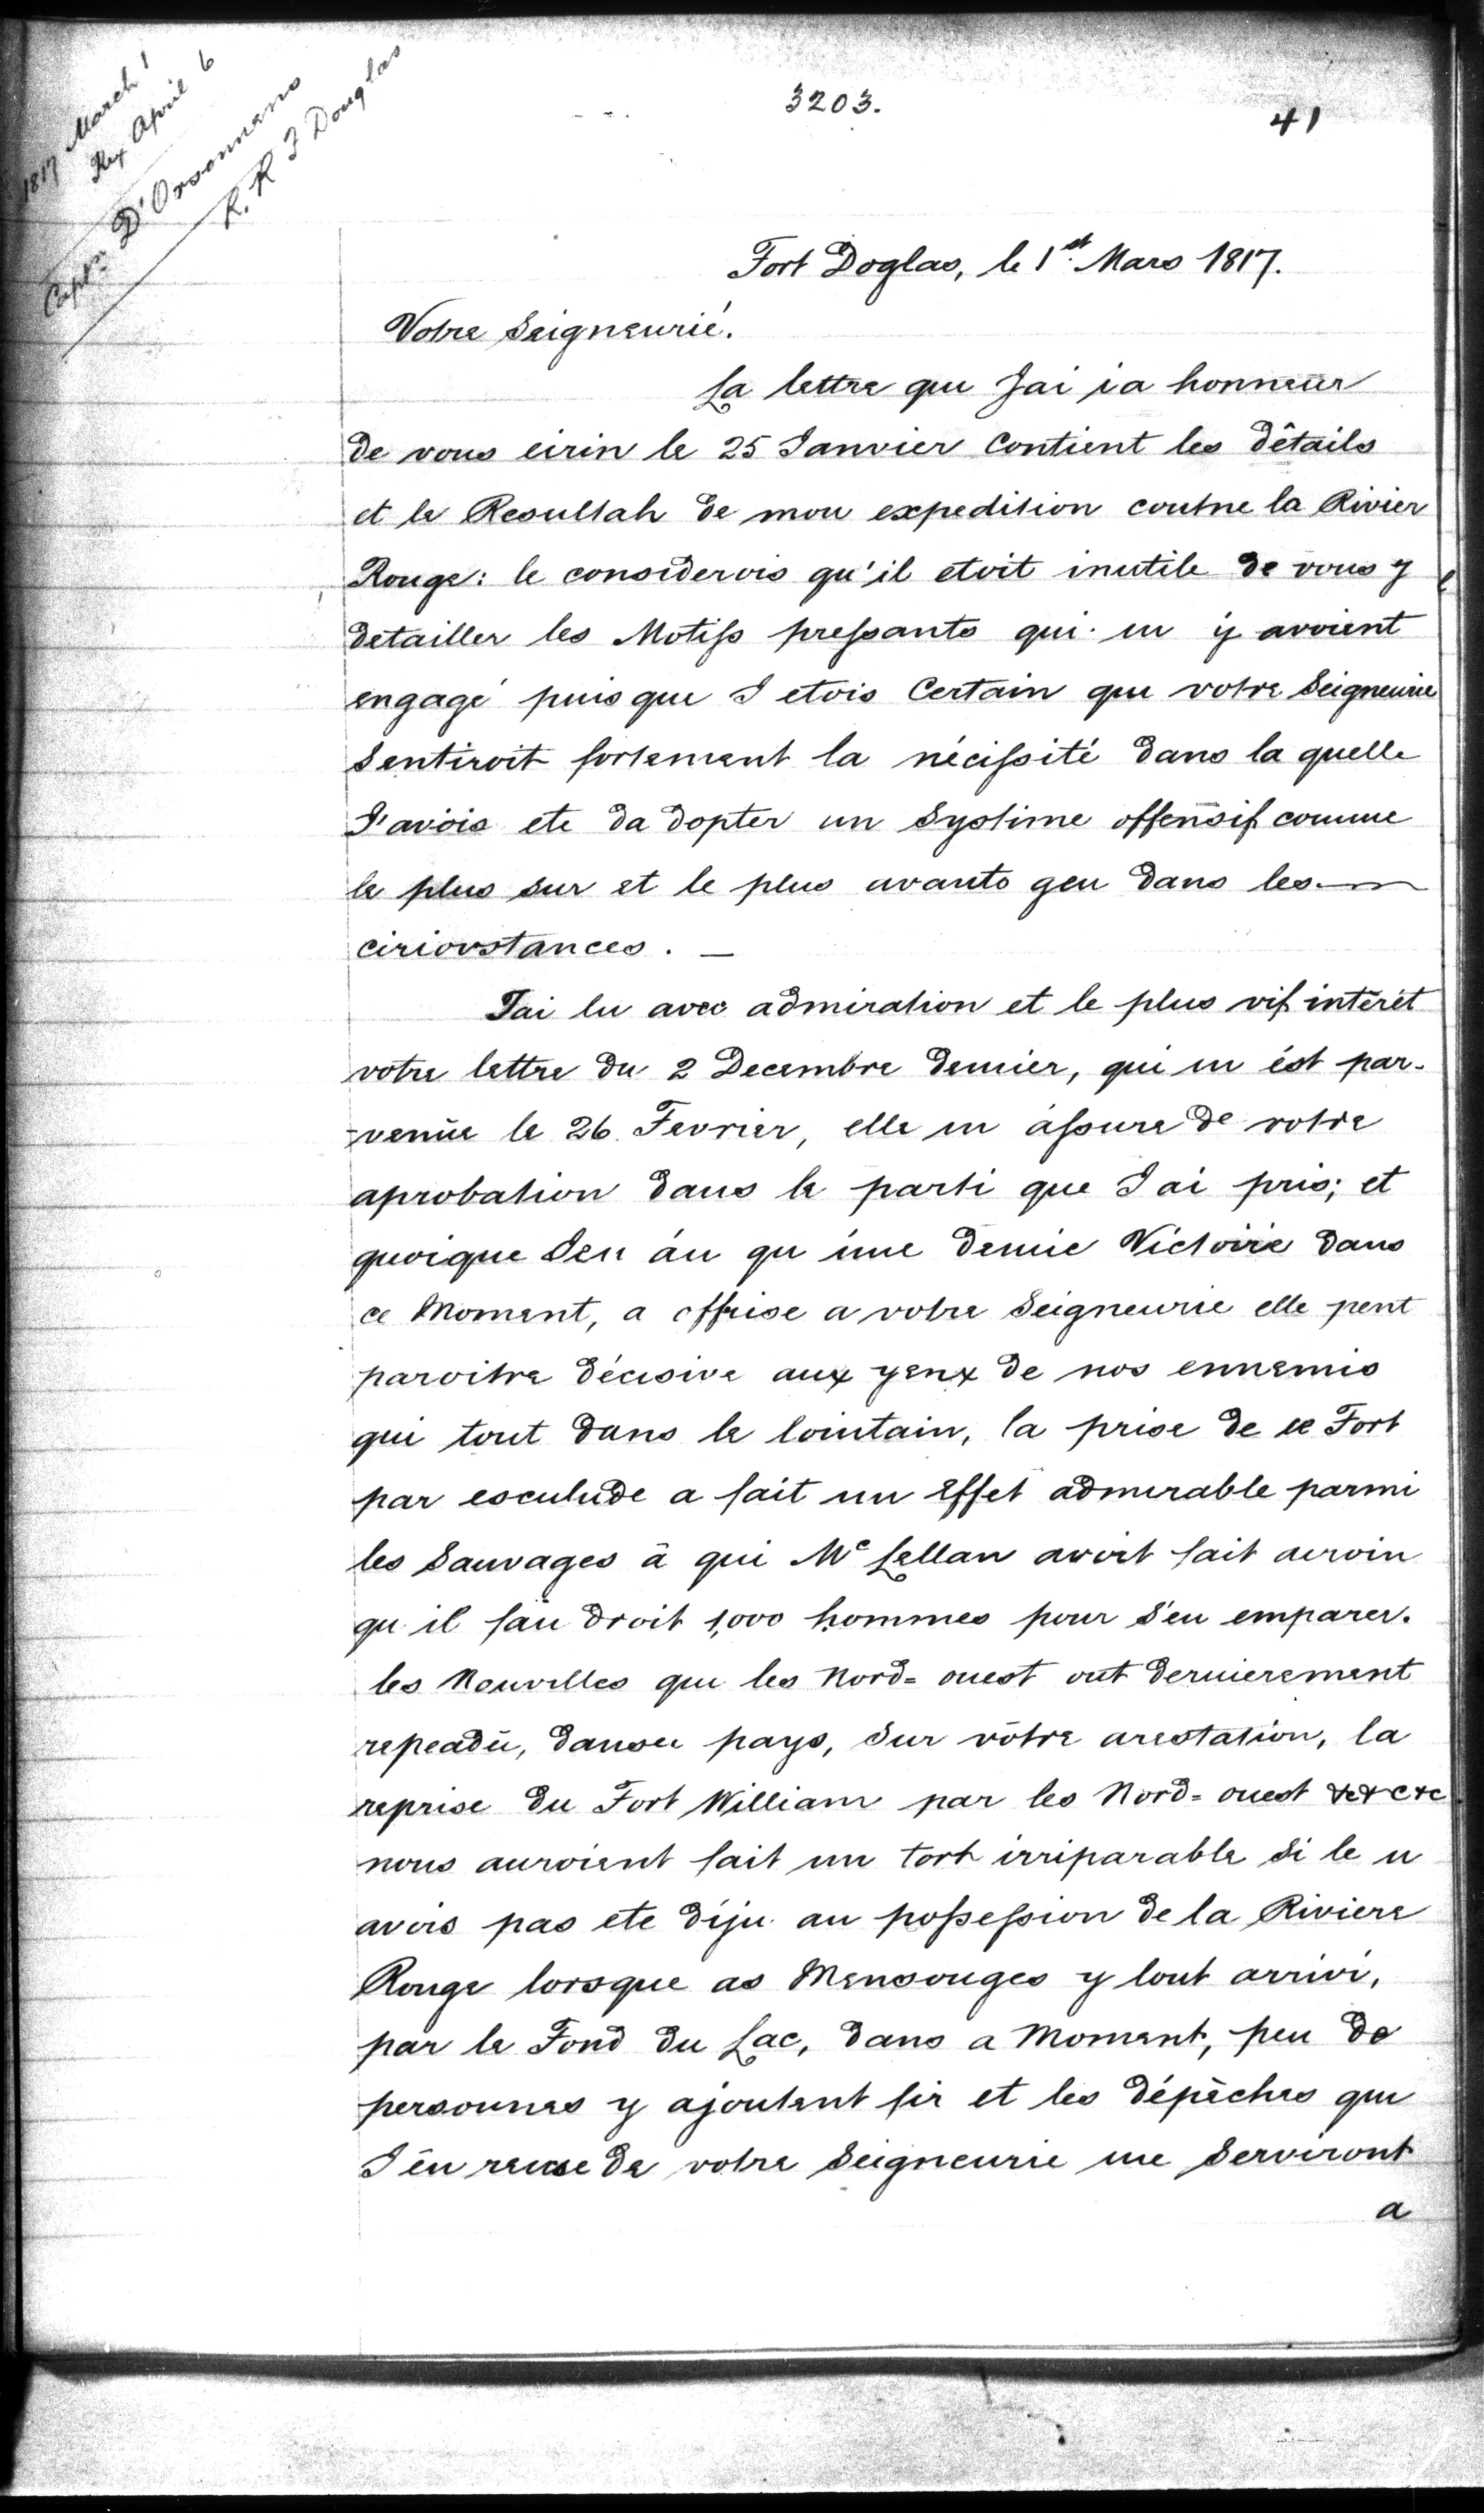 3203.
41
1817 March 1
Rex April 6
Captn D'Orsonnens
R. R F Douglas
Fort Doglas, le 1st Mars 1817.
Votre Seigneurié.
La lettre que Jai ia honneur
de vous eirin le 25 Janvier Contient les détails
et le Resultah de mou expedition coutne la Rivier
Rouge: le considerois qu'il etoit inutile de vous y
detailler les Motifs pressants qui in y avoient
engagé puis que J etois Certain que votre Seigneurie
Sentiroit fortement la nécissité dans la quelle
J'avois ete da dopter un Systime offensif comme
le plus sur et le plus avants geu dans les
ciriovstances. —
Jai lu avec admiration et le plus vif intéret
votre lettre du 2 Decembre demier, qui in ést par-
-venue le 26 Fevrier, elle in assure de votre
aprobation dans le parti que J ai pris; et
quoique Jen áu qu une demie Victoire dans
ce Moment, a offrise a votre Seigneurie elle pent
paroitre décisive aux yenx de nos ennemis
qui tout dans le lointain, la prise de ce Fort
par esculude a fait un Effet admirable parmi
les Sauvages à qui Mc Lellan avoit fait auroin
qu il fau droit 1,000 hommes pour s'eu emparer.
les Nouvelles que les Nord=ouest out dernierement
repeadū, dansu pays, Sur vôtre arestation, la
reprise du Fort William par les Nord=ouest &c&c&c
nous auroient fait un tort irriparable Si le u
avois pas ete diju au possession de la Riviere
Rouge lorsque as Mensouges y lout arrivi,
par le Fond du Lac, dans a Moment, peu de
personnes y ajoutent fir et les dépêches que
J éu reuse de votre Seigneurie me Serviront
a